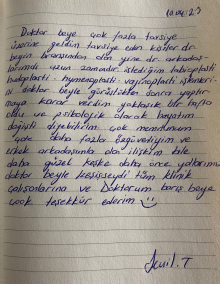 10.04.23
Doktor beye çok fazla tavsiye
üzerine geldim tavsiye eden kişiler dr
beyin branşından olan yine dr arkadaş-
larımdı uzun zamandır istediğim labioplasti
hudoplasti - hymenoplasti - vajinoplasti işlemleri-
ni doktor beyle görüştükten sonra yaptır-
maya karar verdim yaklaşık bir hafta
oldu ve psikolojik olarak hayatım
değişti diyebilirim çok memnunum
çok daha fazla özgüvenliyim ve
erkek arkadaşımla olan ilişkim bile
daha güzel keşke daha önce yollarımız
doktor beyle kesişseydi tüm klinik
çalışanlarına ve Doktorum barış beye
çok teşekkür ederim
T